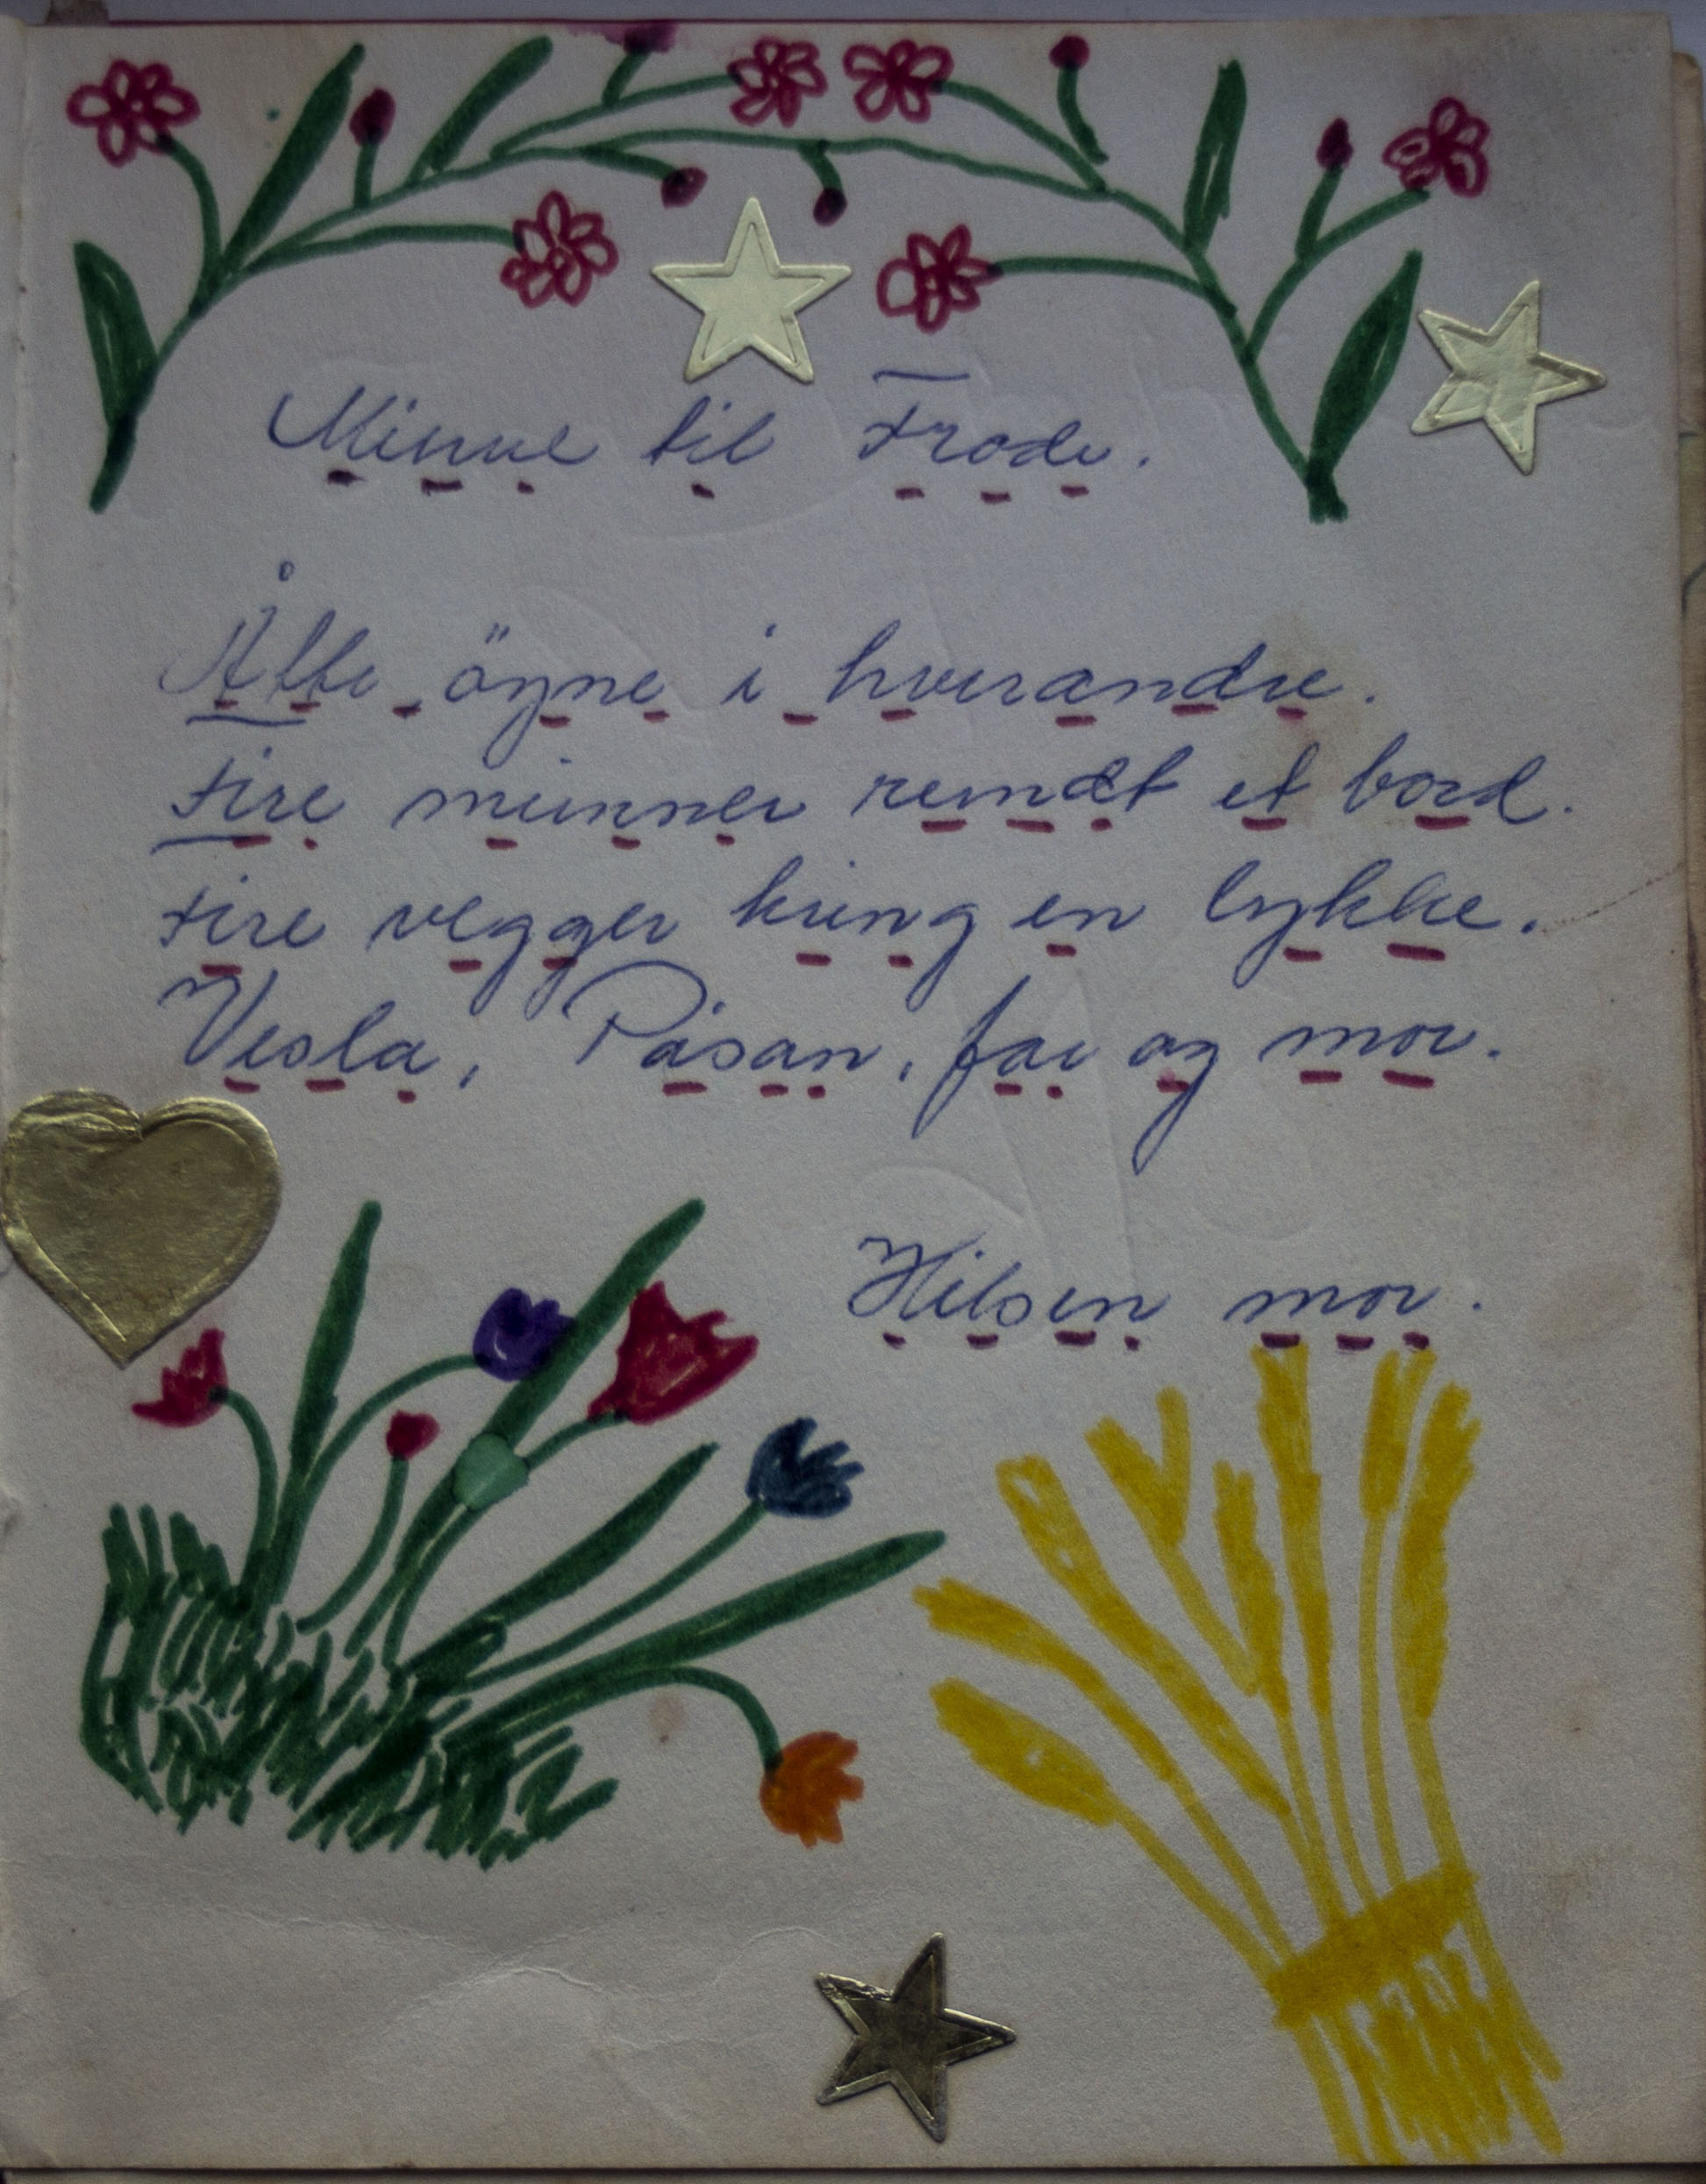 Minne til Frode.
Åtte öyne i hverandre.
Fire munner rundt et bord.
Fire vegger kring en lykke.
Vesla, Påsan, far og mor.
Hilsen mor.